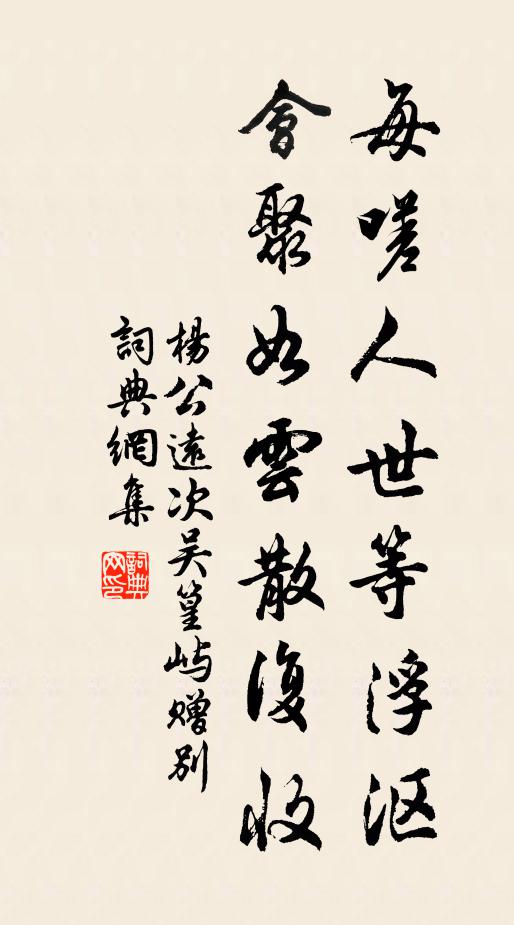 每嗟人世等浮漚
會聚如雲散復收
楊公遠次吴篁嶼贈別
詞典網集
詞典
网印